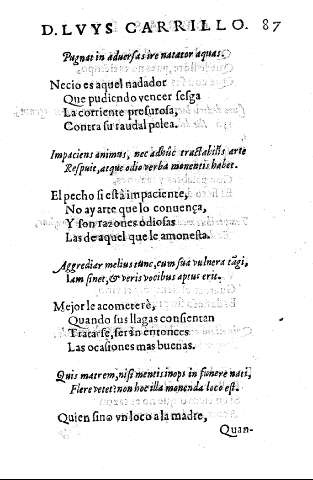 D. LVYS CARRILLO. 87
Pugnat in adversas ire natator aquas.
Necio es aquel nadador
Que pudiendo vencer sesga
La corriente presurosa,
Contra su raudal pelea.
Impaciens animus, nec adhûc tractabilis arte
Respuit, atque odio verba monentis habet.
El pecho si està impaciente,
No ay arte que lo convença,
Y son razones odiosas
Las de aquel que le amonesta.
Aggrediar melius tunc, cum sua vulnera tãgi,
Iam sinet, & veris vocibus aptus erit.
Mejor le acometerè,
Quando sus llagas consientan
Tratarse, seràn entonces
Las ocasiones mas buenas.
Quis matrem, nisi mentis inops in funere nati,
Flere vetet? non hoc illa monenda loco est.
Quien sino vn loco a la madre,
Quan-